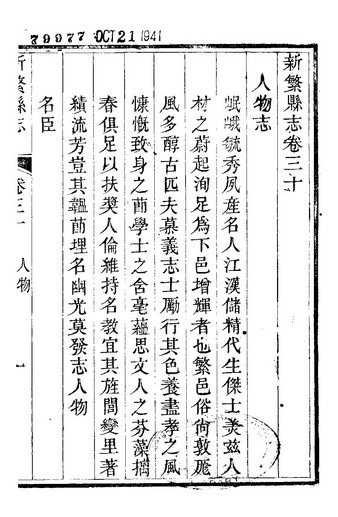 79977 OCT 21 1941
新繁縣志卷三十
人物志
岷峨毓秀夙產名人江漢儲精代生傑士美茲人
材之蔚起洵足爲下邑增輝者也繁邑俗尙敦龐
風多醇古匹夫慕義志士勵行其色養盡孝之風
慷慨致身之莭學士之含毫蘊思文人之芬藻摛
春俱足以扶奬人倫維持名敎宜其旌閭變里著
績流芳豈其韞莭埋名幽光莫發志人物
名臣
新繁縣志
卷三十
人物
一